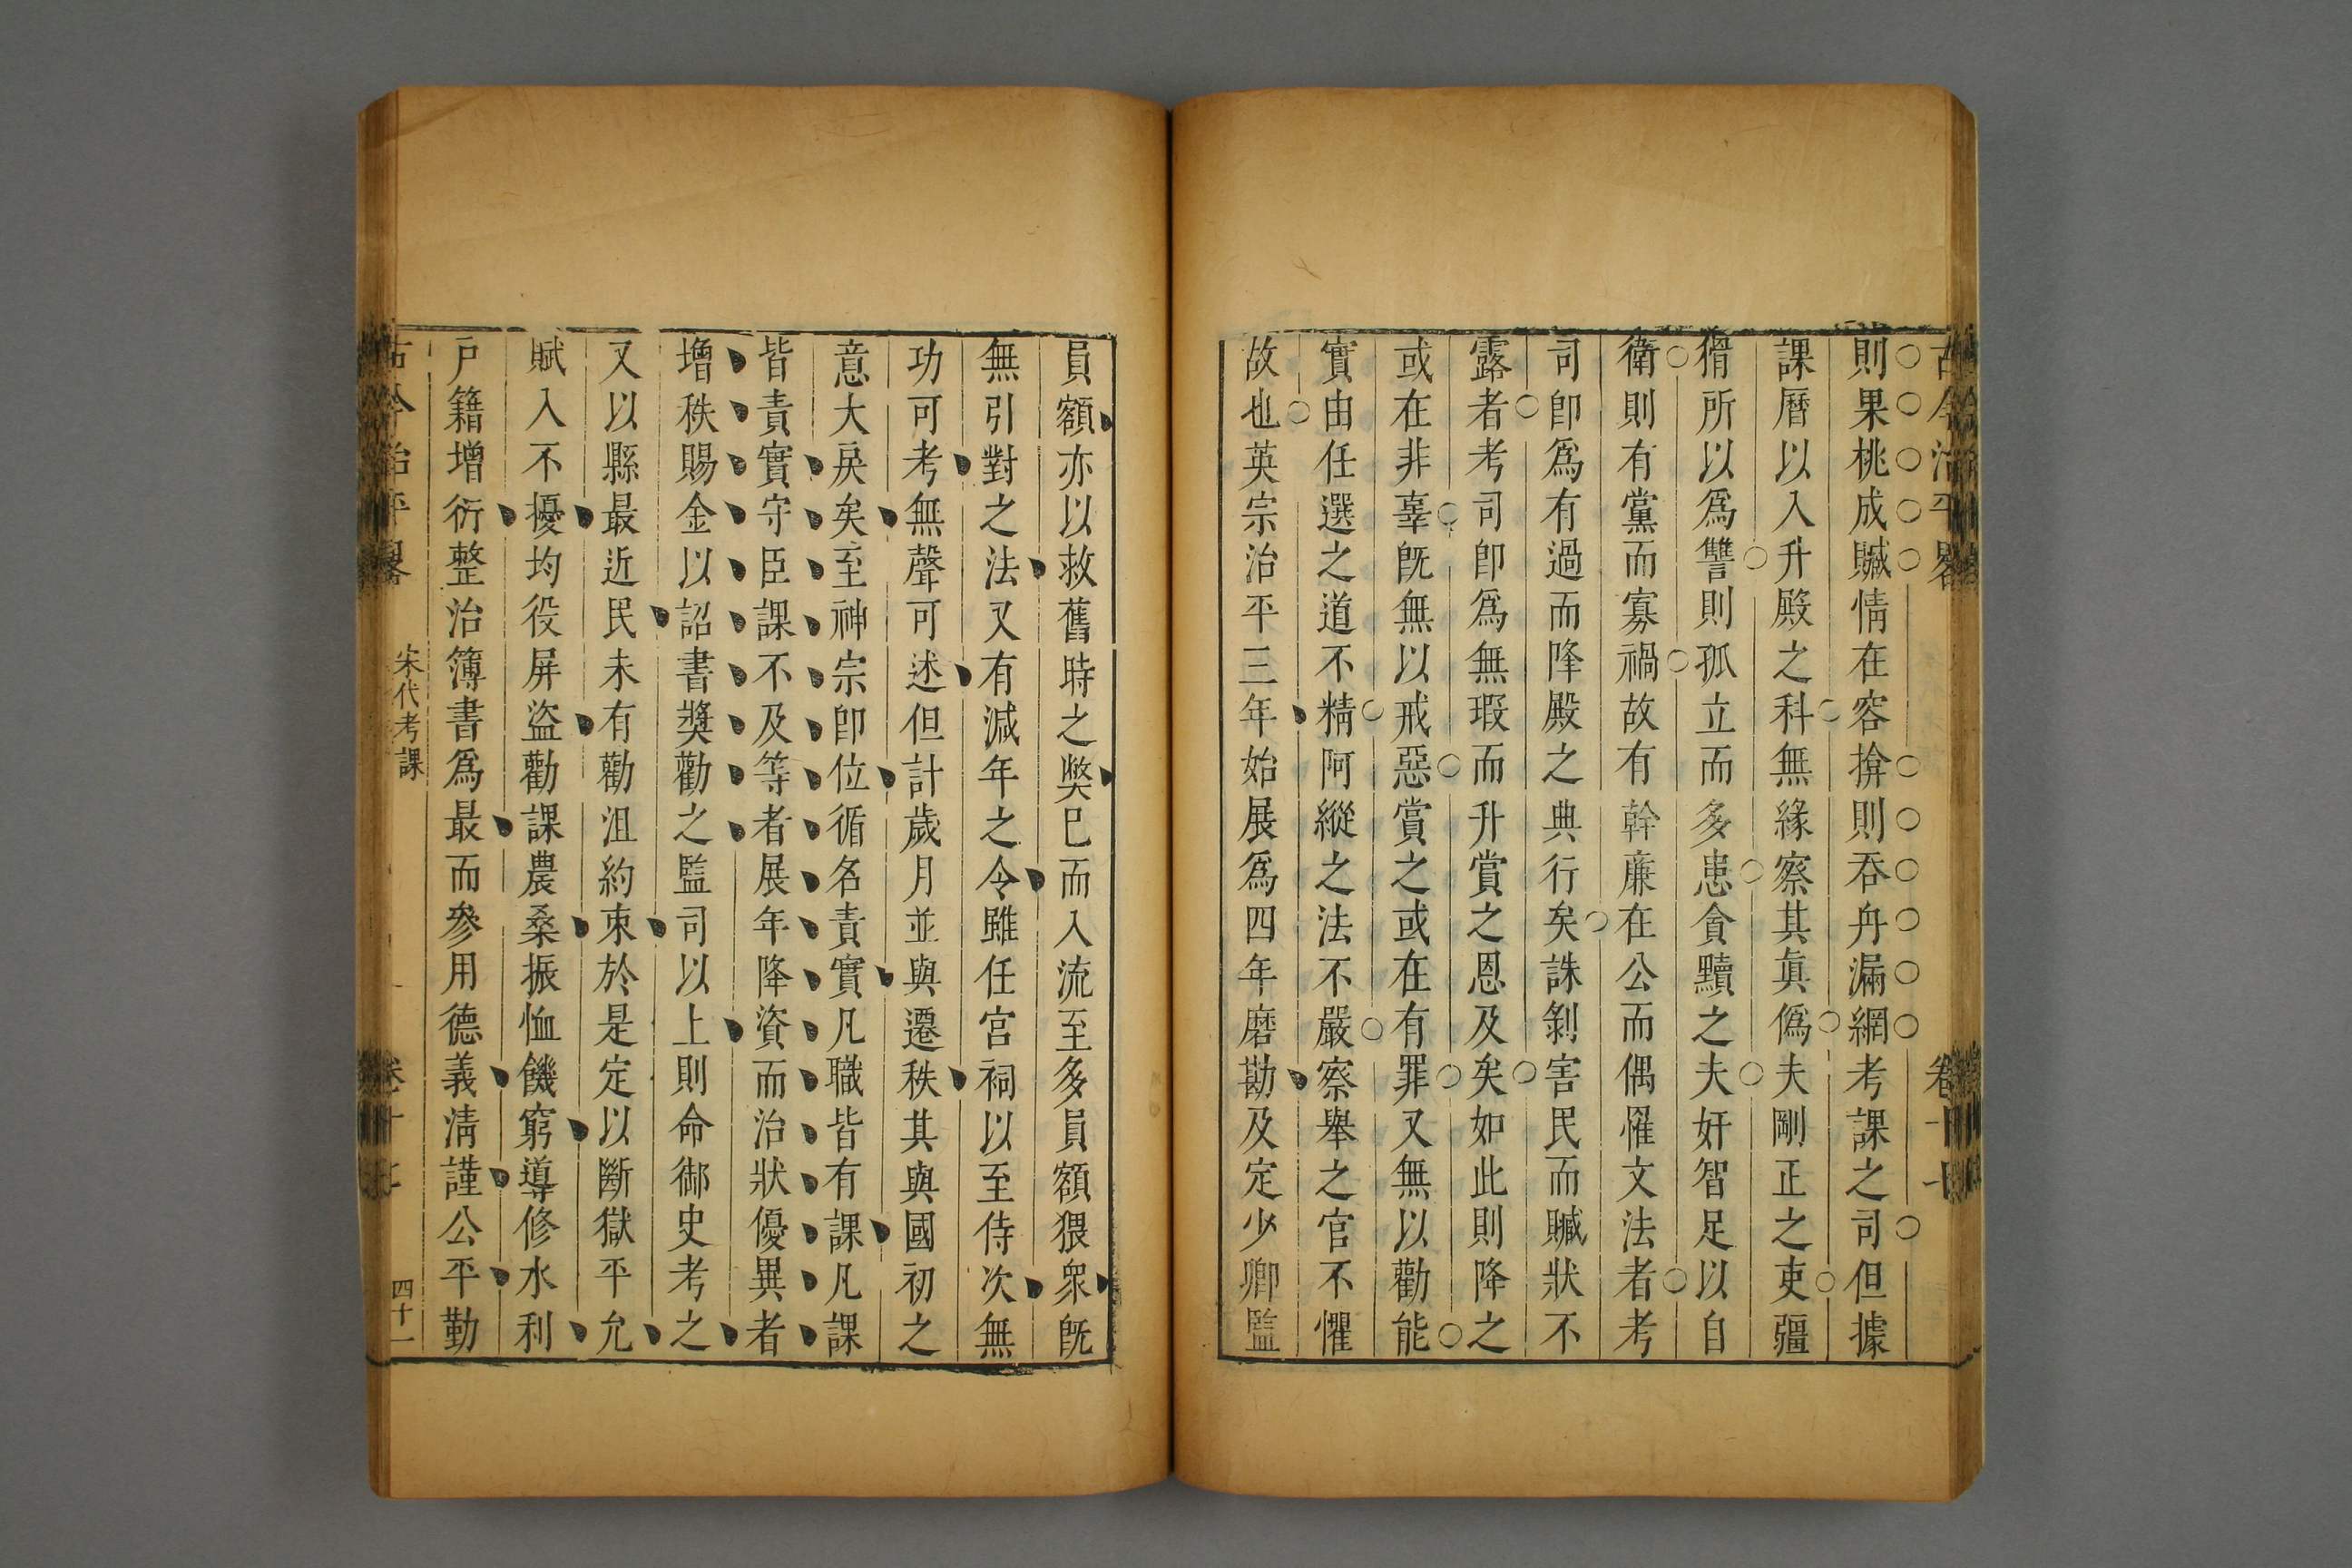 古今治平畧
卷十七
則果桃成贓情在容揜則吞舟漏網考課之司但據
課曆以入升殿之科無緣察其眞僞夫剛正之吏疆
猾所以爲讐則孤立而多患貪黷之夫奸智足以自
衛則有黨而寡禍故有幹廉在公而偶罹文法者考
司卽爲有過而降殿之典行矣誅剝害民而贓狀不
露者考司卽爲無瑕而升賞之恩及矣如此則降之
或在非辜旣無以戒惡賞之或在有罪又無以勸能
實由任選之道不精阿縱之法不嚴察舉之官不懼
故也英宗治平三年始展爲四年磨勘及定少卿監
員額亦以救舊時之獘巳而入流至多員額猥衆旣
無引對之法又有減年之令雖任宮祠以至侍次無
功可考無聲可述但計歲月並與遷秩其與國初之
意大戾矣至神宗卽位循名責實凡職皆有課凡課
皆責實守臣課不及等者展年降資而治狀優異者
增秩賜金以詔書獎勸之監司以上則命御史考之
又以縣最近民未有勸沮約束於是定以斷獄平允
賦入不擾均役屏盜勸課農桑振恤饑窮導修水利
戸籍增衍整治簿書爲最而參用德義清謹公平勤
古今治平畧
宋代考課
卷十七
四十一